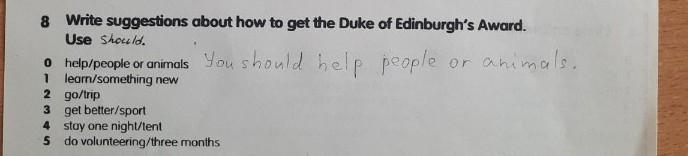 8 Write suggestions about how to get the Duke of Edinburgh's Award.
Use should.
0 help/people or animals You should help people or animals.
1 learn/something new
2 go/trip
3 get better/sport
4 stay one night/tent
5 do volunteering/three months